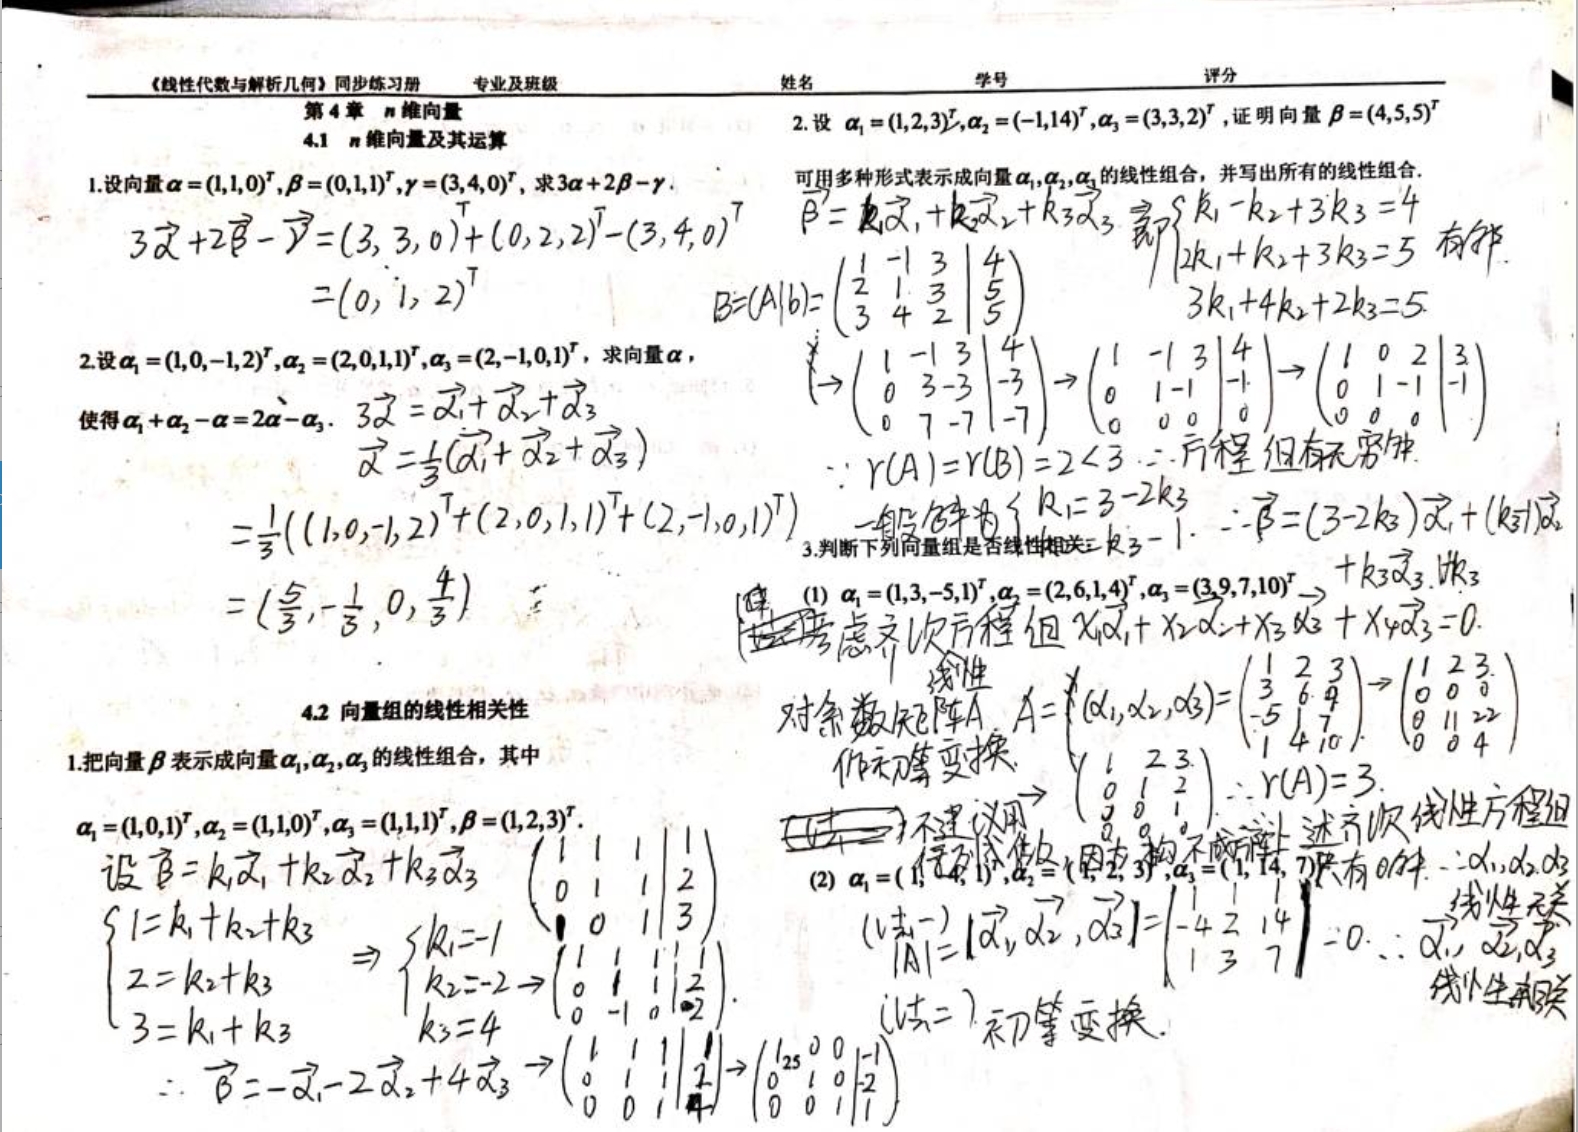 《线性代数与解析几何》同步练习册 专业及班级 姓名 学号 评分
第 4 章 n 维向量
4.1 n 维向量及其运算
1.设向量α=(1,1,0)ᵀ,β=(0,1,1)ᵀ,γ=(3,4,0)ᵀ, 求3α+2β-γ.
3α⃗+2β⃗-γ⃗=(3,3,0)ᵀ+(0,2,2)ᵀ-(3,4,0)ᵀ
=(0,1,2)ᵀ
2.设α₁=(1,0,-1,2)ᵀ,α₂=(2,0,1,1)ᵀ,α₃=(2,-1,0,1)ᵀ, 求向量α,
使得α₁+α₂-α=2α-α₃.
3α⃗=α⃗₁+α⃗₂+α⃗₃
α⃗=1/3(α⃗₁+α⃗₂+α⃗₃)
=1/3((1,0,-1,2)ᵀ+(2,0,1,1)ᵀ+(2,-1,0,1)ᵀ)
=(5/3,-1/3,0,4/3)
4.2 向量组的线性相关性
1.把向量β表示成向量α₁,α₂,α₃的线性组合, 其中
α₁=(1,0,1)ᵀ,α₂=(1,1,0)ᵀ,α₃=(1,1,1)ᵀ,β=(1,2,3)ᵀ.
设β⃗=k₁α⃗₁+k₂α⃗₂+k₃α⃗₃
{1=k₁+k₂+k₃
2=k₂+k₃
3=k₁+k₃
⇒ {k₁=-1
k₂=-2
k₃=4
∴ β⃗=-α⃗₁-2α⃗₂+4α⃗₃
(1 1 1 | 1
0 1 1 | 2
1 0 1 | 3)
→(1 1 1 | 1
0 1 1 | 2
0 -1 0 | 2)
→(1 1 1 | 1
0 1 1 | 2
0 0 1 | 4)
→(1 0 0 | -1
0 1 0 | -2
0 0 1 | 1)
25
2.设 α₁=(1,2,3)ᵀ,α₂=(-1,14)ᵀ,α₃=(3,3,2)ᵀ,证明向量β=(4,5,5)ᵀ
可用多种形式表示成向量α₁,α₂,α₃的线性组合, 并写出所有的线性组合.
β⃗=k₁α⃗₁+k₂α⃗₂+k₃α⃗₃ 即{k₁-k₂+3k₃=4
2k₁+k₂+3k₃=5 有解.
3k₁+4k₂+2k₃=5.
B=(A|b)=(1 -1 3 | 4
2 1 3 | 5
3 4 2 | 5)
→(1 -1 3 | 4
0 3 -3 | -3
0 7 -7 | -7)
→(1 -1 3 | 4
0 1 -1 | -1
0 0 0 | 0)
→(1 0 2 | 3
0 1 -1 | -1
0 0 0 |)
∵ r(A)=r(B)=2<3 ∴方程组有无穷解.
一般解为{k₁=3-2k₃
k₂=k₃-1.
∴β⃗=(3-2k₃)α⃗₁+(k₃-1)α⃗₂
+k₃α⃗₃. ∀k₃
3.判断下列向量组是否线性相关:
(1) α₁=(1,3,-5,1)ᵀ,α₂=(2,6,1,4)ᵀ,α₃=(3,9,7,10)ᵀ
解 考虑齐次方程组 x₁α⃗₁+x₂α⃗₂+x₃α⃗₃+x₄α⃗₃=0.
线性
对系数矩阵A
作初等变换.
A=(α₁,α₂,α₃)=(1 2 3
3 6 9
-5 1 7
1 4 10)
→(1 2 3
0 0 0
0 11 22
0 0 4)
→(1 2 3
0 1 2
0 0 1
0 0 0)
∴r(A)=3.
不建议用
上述齐次线性方程组
只有0解 ∴α₁,α₂,α₃
线性无关
(2) α₁=(1,-4,1)ᵀ,α₂=(1,2,3)ᵀ,α₃=(1,14,7)ᵀ
(法一)
|A|=|α⃗₁,α⃗₂,α⃗₃|=|1 1 1
-4 2 14
1 3 7|
=0. ∴α⃗₁,α⃗₂,α⃗₃
线性相关
(法二) 初等变换.